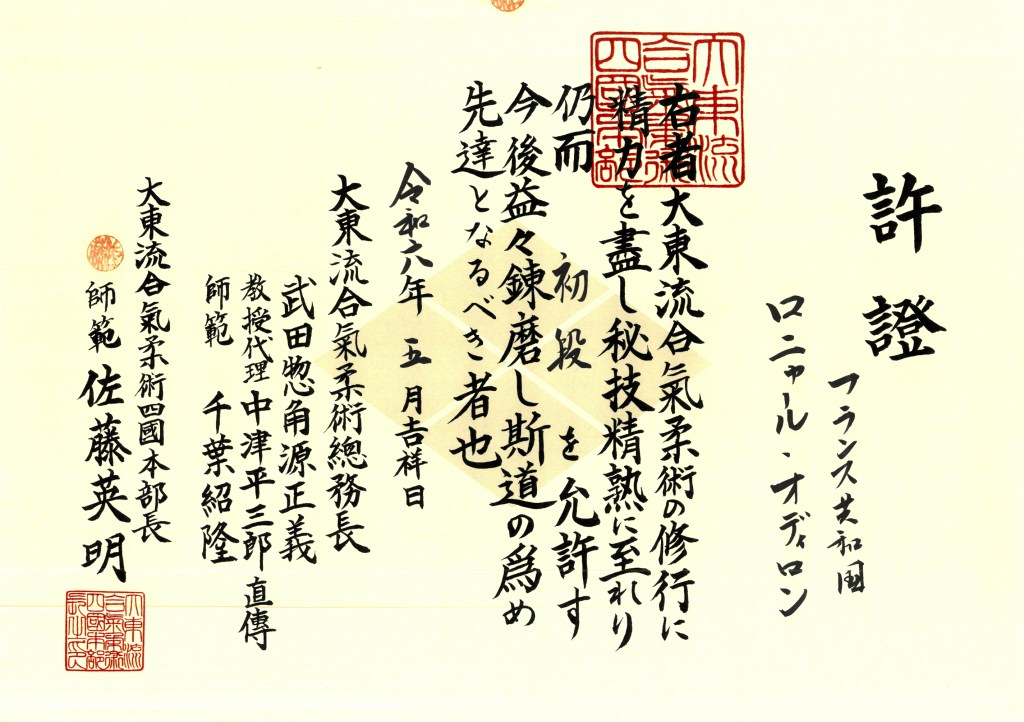 許證
フランス共和国
ロニャール・オディロン
右者大東流合氣柔術の修行に
精力を盡し秘技精熟に至れり
仍而 初段を允許す
今後益々錬磨し斯道の爲め
先達となるべき者也
令和六年 五月吉祥日
大東流合氣柔術總務長
武田惣角源正義
教授代理 中津平三郎 直傳
師範 千葉紹隆
大東流合氣柔術四國本部長
師範 佐藤英明
大東流
合氣柔術
四國本部
大東流
合氣柔術
四國本部
長之印